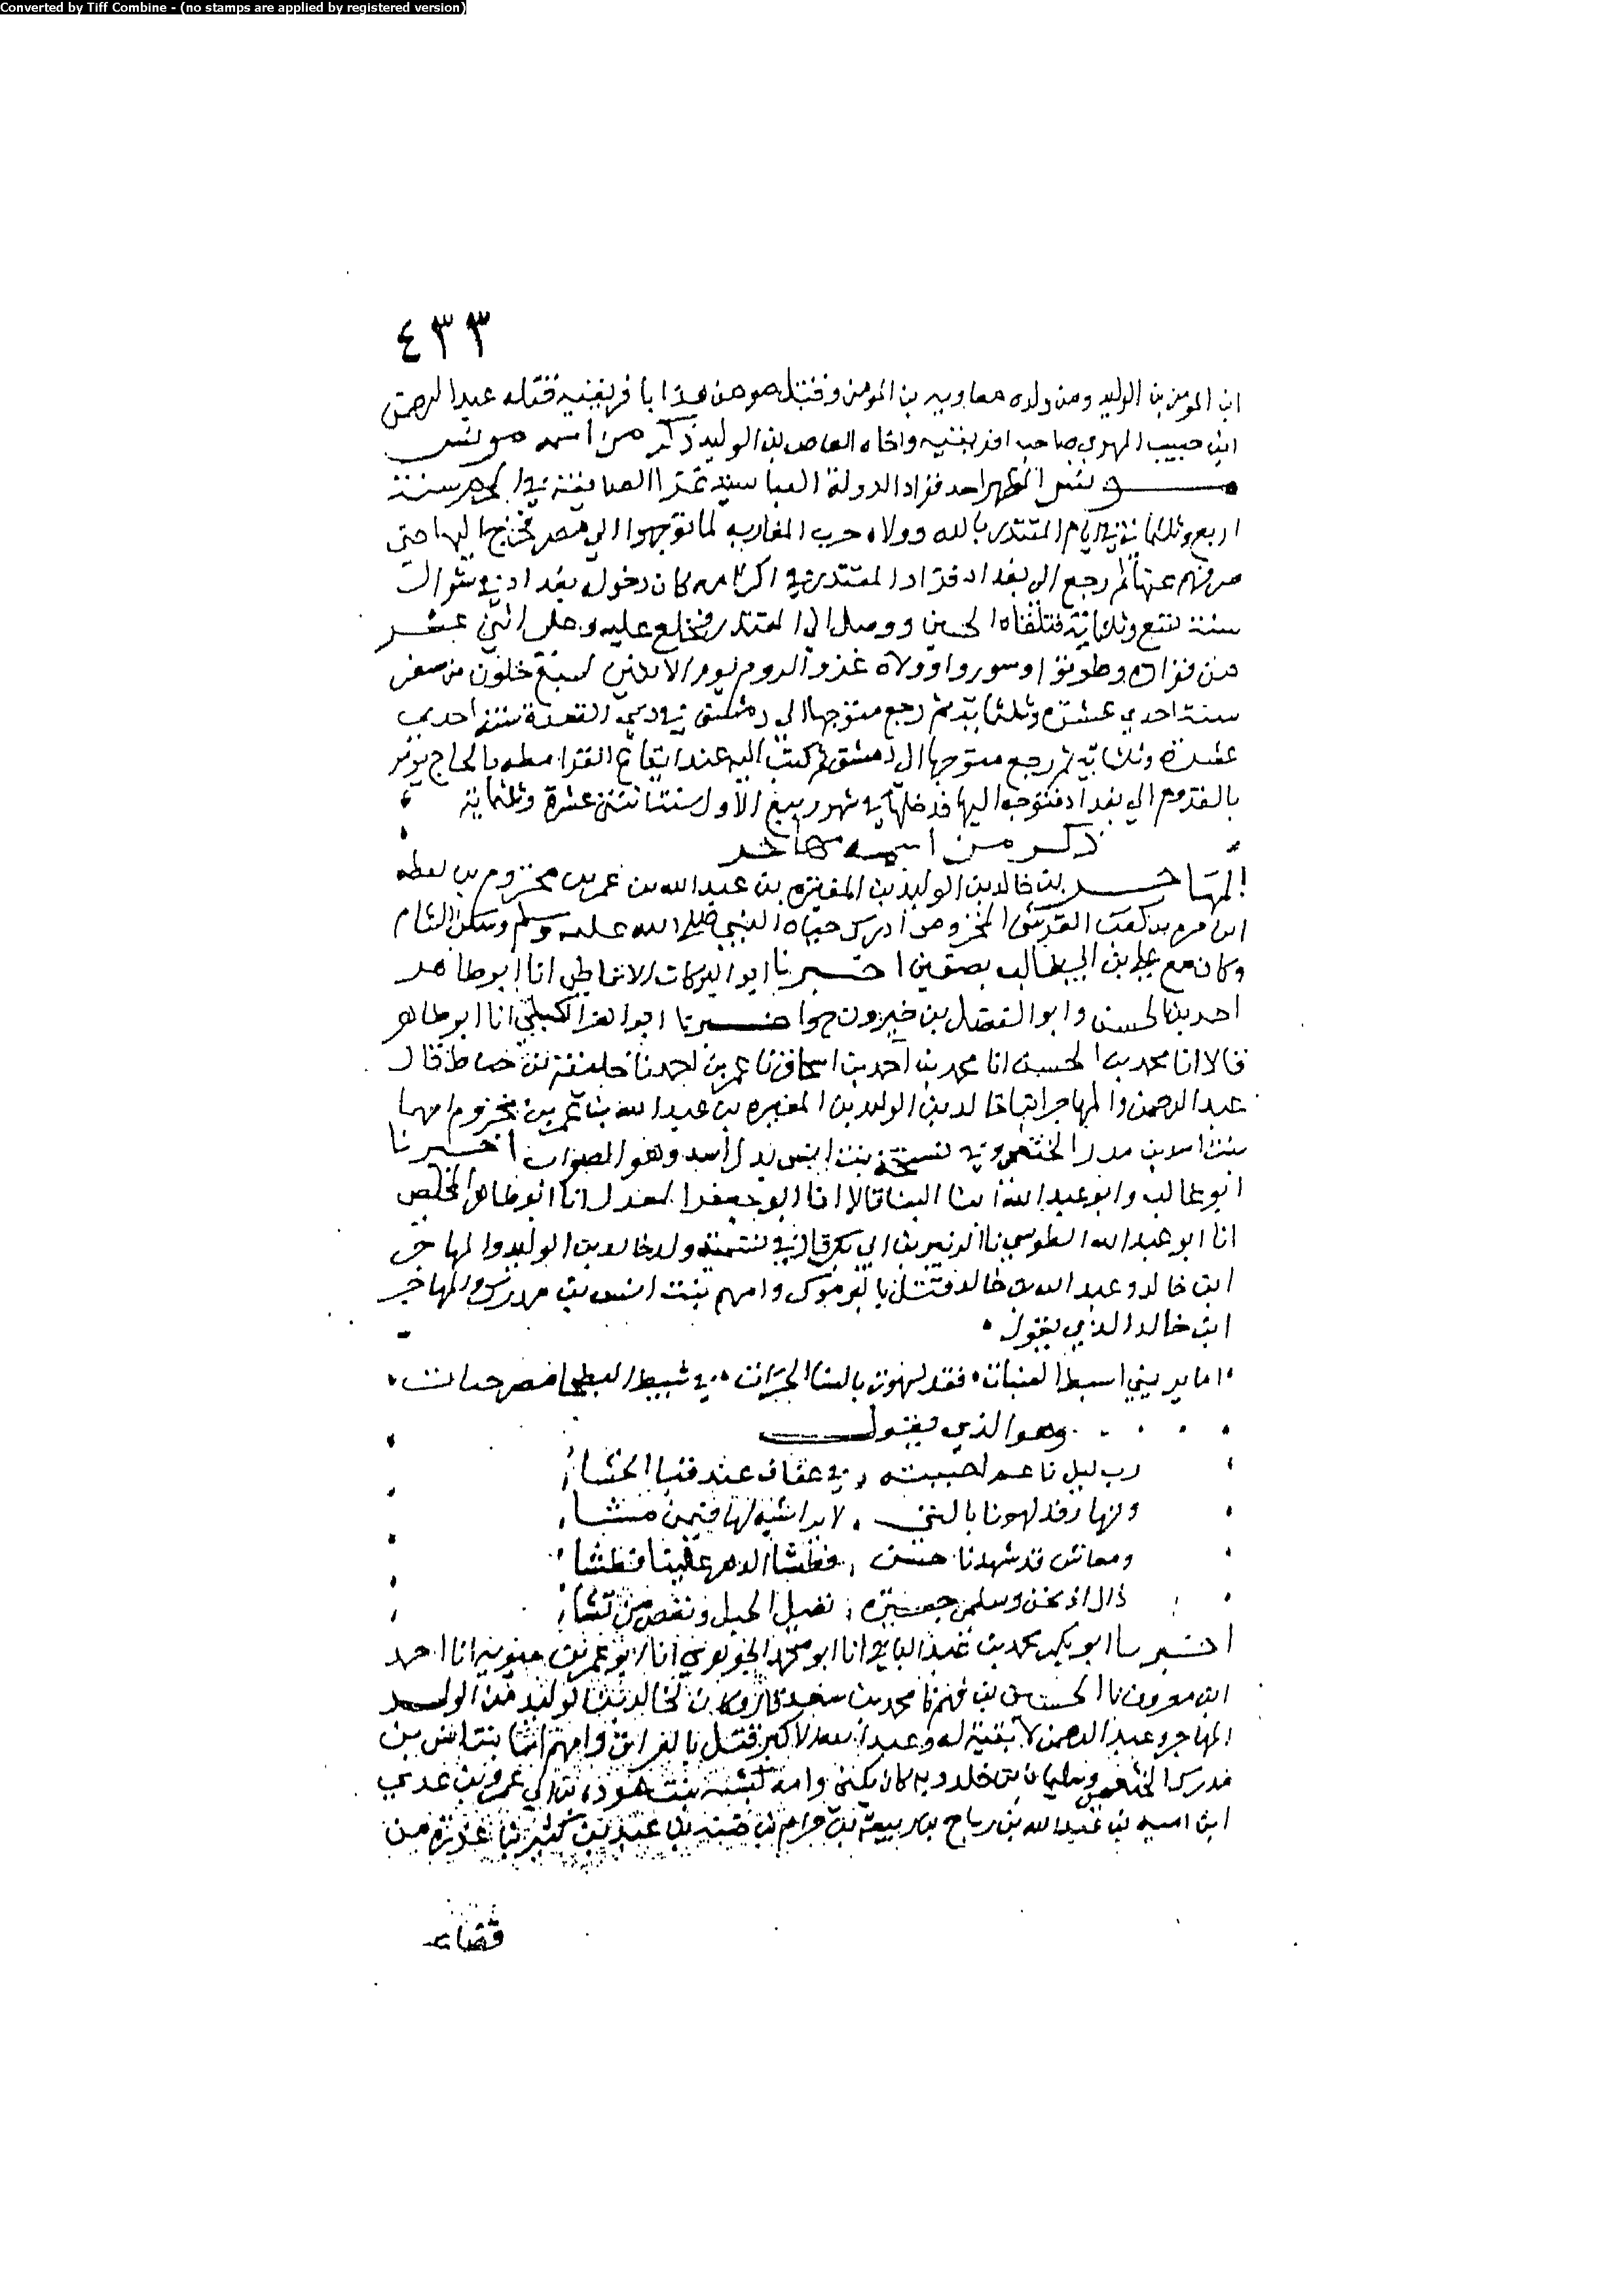 Converted by Tiff Combine - (no stamps are applied by registered version)
٤٣٣
ابن المومن بن الوليد ومن ولده معاويه بن المومن وقتل مومن هذا بافريقيه قتله عبد الرحمن
ابن حبيب المهري صاحب افريقيه واخاه العاص بن الوليد ذكر من اسمه مونس
مونس المظفر احد قواد الدولة العباسية غزا الصايفة في المحرم سنة
اربع وثلثماية في ايام المقتدر بالله وولاه حرب المغاربه لما توجهوا الى مصر فخرج اليها حتى
صرفهم عنها ثم رجع الى بغداد فزاد المقتدر في اكرامه كان دخوله بغداد في شوال
سنة تسع وثلثماية فتلقاه الحسين ووصل الى المقتدر فخلع عليه وعلى اثني عشر
من قواده وطوقوا وسوروا وولاه غزو الروم يوم الاثنين لسبع خلون من صفر
سنة احدي عشرة وثلثماية ثم رجع متوجها الى دمشق في ذي القعدة سنة احدي
عشرة وثلثماية ثم رجع متوجها الى دمشق ثم كتب اليه عند ايقاع القرامطه بالحاج يومر
بالقدوم الى بغداد فتوجه اليها فدخلها في شهر ربيع الاول سنة اثنتي عشرة وثلثماية
ذكر من اسمه مهاجر
المهاجر بن خالد بن الوليد بن المغيره بن عبد الله بن عمر بن مخزوم بن يقظه
ابن مره بن كعب القرشي المخزومي ادرك حياه النبي صلى الله عليه وسلم وسكن الشام
وكان مع علي بن ابي طالب بصفين اخبرنا ابو البركات الانماطي انا ابو طاهر
احمد بن الحسن وابو الفضل بن خيرون ح واخبرنا ابو العز الكيلي انا ابو طاهر
قالا انا محمد بن الحسن انا محمد بن احمد بن اسحاق نا عمر بن احمد نا خليفة بن خياط قال
عبد الرحمن والمهاجر ابنا خالد بن الوليد بن المغيره بن عبد الله بن عمر بن مخزوم امهما
بنت اسد بن مدرك الخثعمي وفي نسخة بنت انس بدل اسد وهو الصواب اخبرنا
ابو غالب وابو عبد الله ابنا البنا قالا انا ابو جعفر المعدل انا ابو طاهر المخلص
انا ابو عبد الله الطوسي نا الزبير بن ابي بكر قال في تسمية ولد خالد بن الوليد والمهاجر
ابن خالد وعبد الله بن خالد قتل باليرموك وامهم بنت انس بن مدرك والمهاجر
ابن خالد الذي يقول
اما يريني اسبط فقد لهوت بالنسا في شبيط
وهو الذي يقول
رب ليل ناعم احييته في عفاف عند قبا الحشا
ونهار قد لهونا بالتي لا يرا شبه لها فيمن مشا
ومعاش قد شهدنا حسن فطشا الدهر علينا فطشا
ذاك اذ نحن وسلمى جيره نصل الحبل ونعص من تشا
اخبرنا ابو بكر محمد بن عبد الباقي انا ابو محمد الجوهري انا ابو عمر بن حيويه انا احمد
ابن معروف نا الحسين بن فهم نا محمد بن سعد قال وكان لخالد بن الوليد من الولد
المهاجر وعبد الرحمن لا بقية له وعبد الله الاكبر قتل بالعراق وامهم اسما بنت انس بن
مدرك الخثعمي وسليمان بن خالد وبه كان يكنى وامه كبشة بنت هوذه بن ابي عمرو بن عدي
ابن اميه بن عبد الله بن رباح بن ربيعة بن حرام بن ضبه بن عبد بن كثير بن عذره من
قضاعه